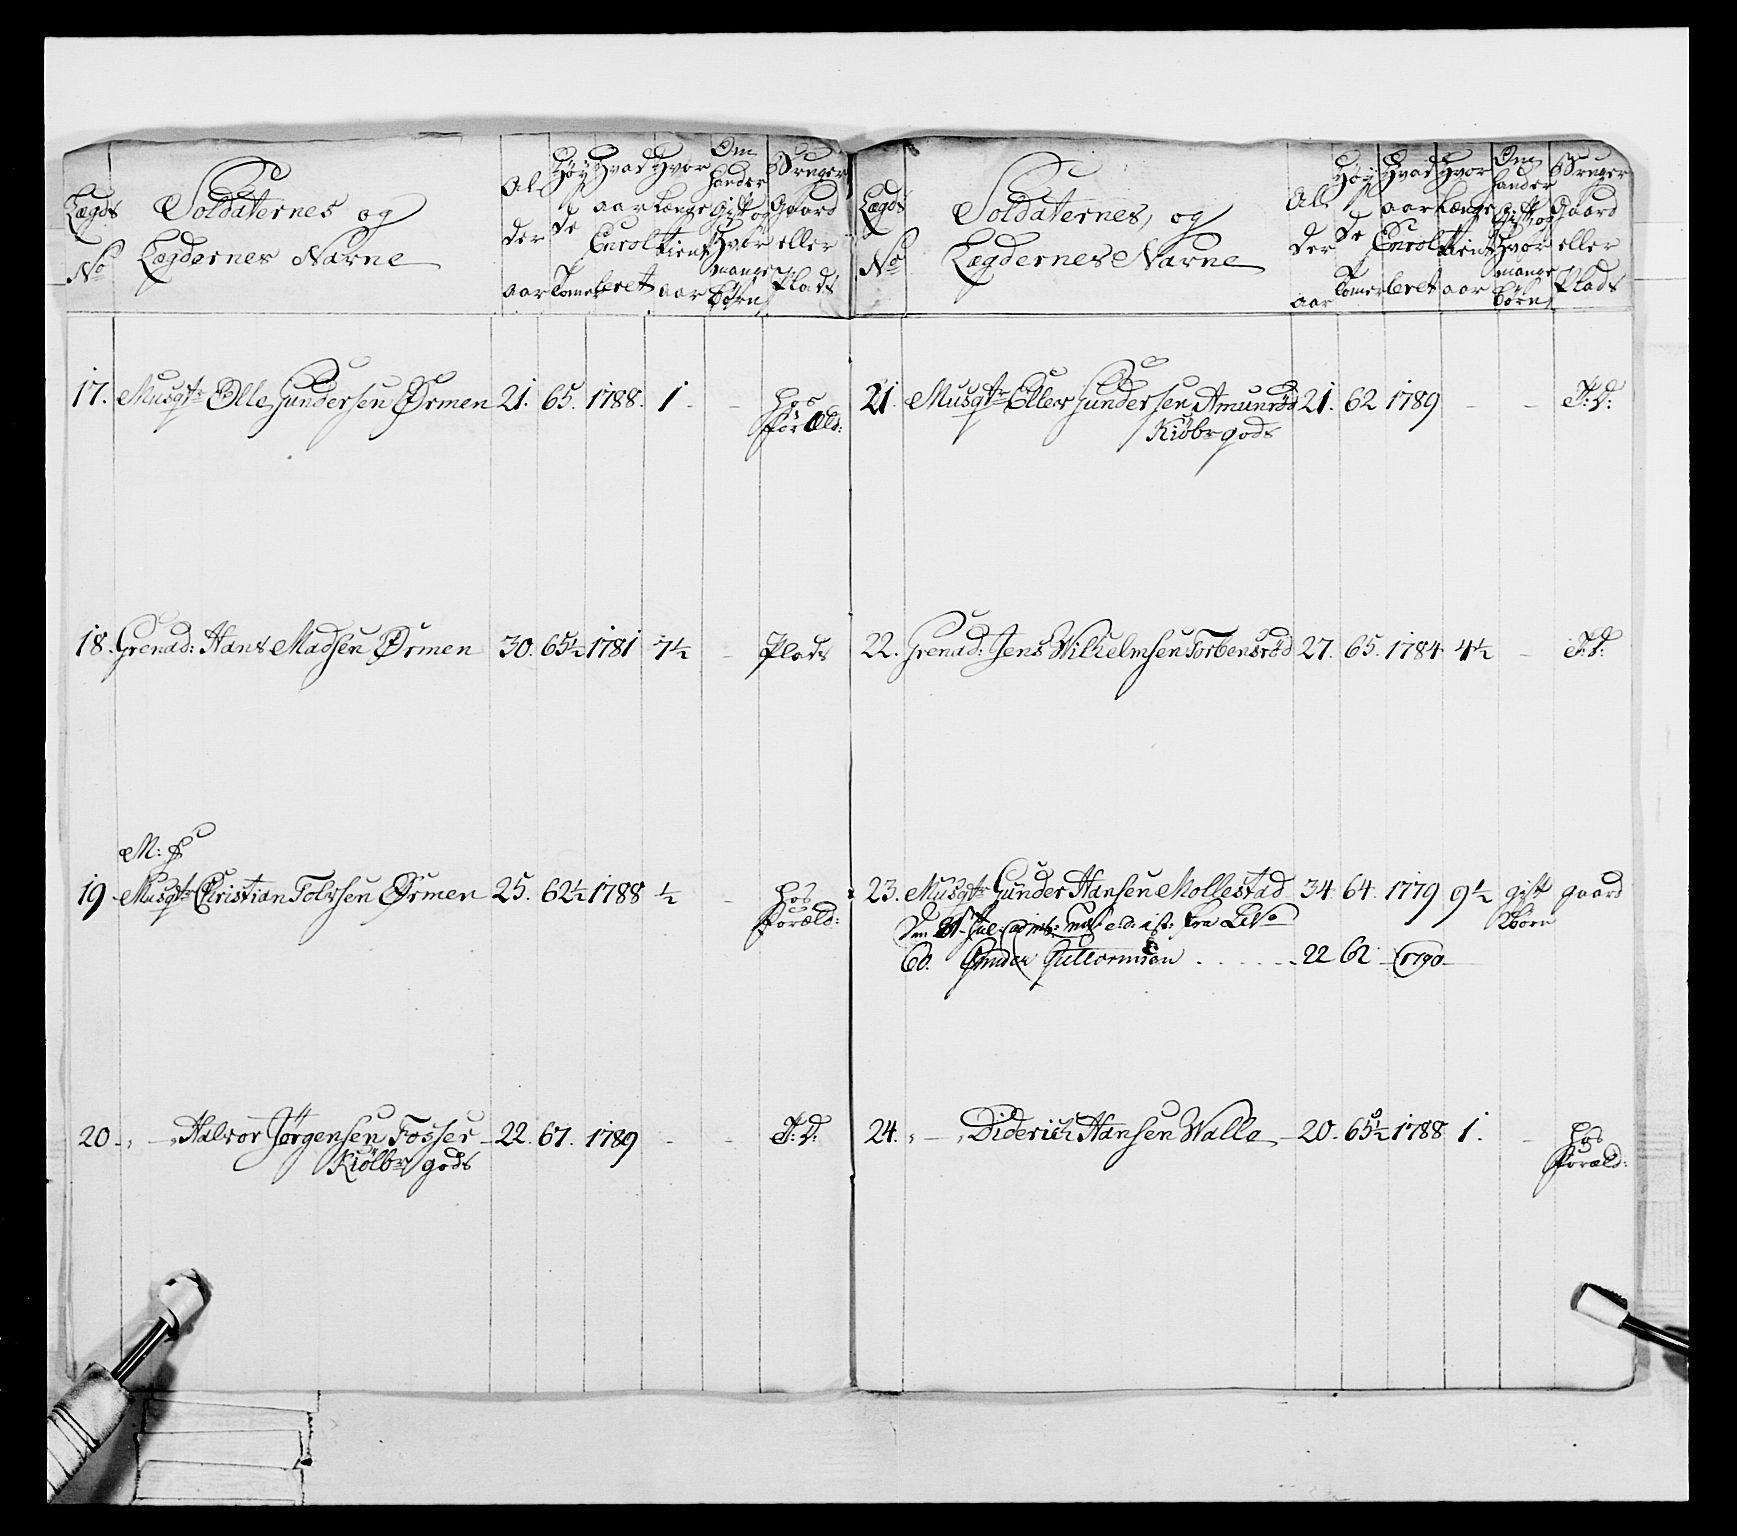 Lægds
No
Soldaternes og
Lægdernes Navne
Al
der
aar
Høy
de
Tomer
Hvad
aar
Enrol
leret
Hvor
længe
tient
aar
Om
hander
Gift og
Hvor
mange
börn
Bruger
Gaard
eller
Plads
17. Musqtr Olle Gundersen Örmen 21. 65. 1788. 1 - - hos
foræld:
18. Grenad: Hans Madsen Örmen 30. 65½ 1781 7½ - Plads
M:
19 Musqtr Christian Tolvsen Örmen 25. 62½ 1788 ½ - hos
foræld:
20 - „ - „ Halvor Jörgensen Fosser - 22. 67. 1789 - - T: D:
Kiölbr gods
Lægds
No
Soldaternes, og
Lægdernes Navne
Al
der
aar
Høy
de
Tomer
Hvad
aar
Enrol
leret
Hvor
længe
tient
aar
Om
hander
Gift og
Hvor
mange
börn
Bruger
Gaard
eller
Plads
21. Musqtr Oller Gundersen Amunröd 21. 62 1789 - - T: D:
Kiölbr gods
22. Grenad: Jens Wilhelmsen Torbensröd 27. 65. 1784 4½ - T: D:
23. Musqtr Gunder Hansen Mollestad 34 64. 1779 9½ gift gaard
2 börn
Den
fra
60. Guttormsen - - - - 22 62 1790
24. „ - „ Diderich Hansen Walle - 20. 65½ 1788 1. - hos
foræld: